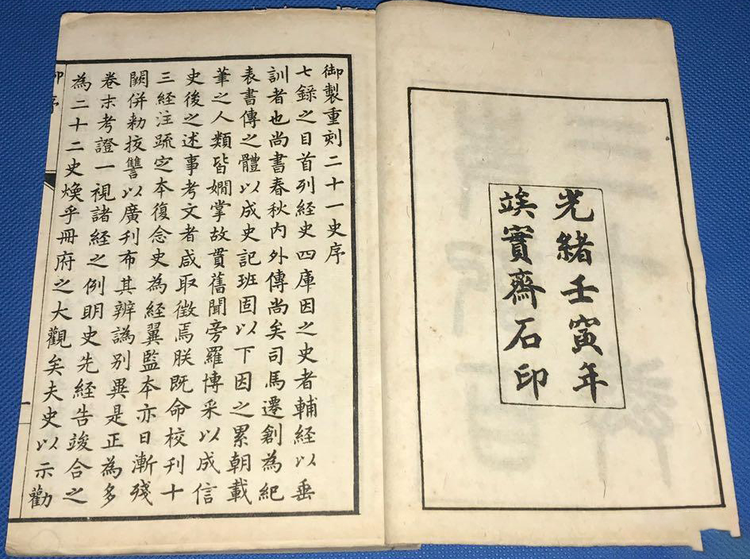 光緒壬寅年
竢實齋石印
御製重刻二十一史序
七錄之目首列經史四庫因之史者輔經以垂
訓者也尚書春秋內外傳尚矣司馬遷創為紀
表書傳之體以成史記班固以下因之累朝載
筆之人類皆嫻掌故貫舊聞旁羅博采以成信
史後之述事考文者咸取徵焉朕既命校刊十
三經注疏定本復念史為經翼監本亦日漸殘
闕併勅挍讐以廣刊布其辨譌別異是正為多
卷末考證一視諸經之例明史先經告竣合之
為二十二史煥乎冊府之大觀矣夫史以示勸